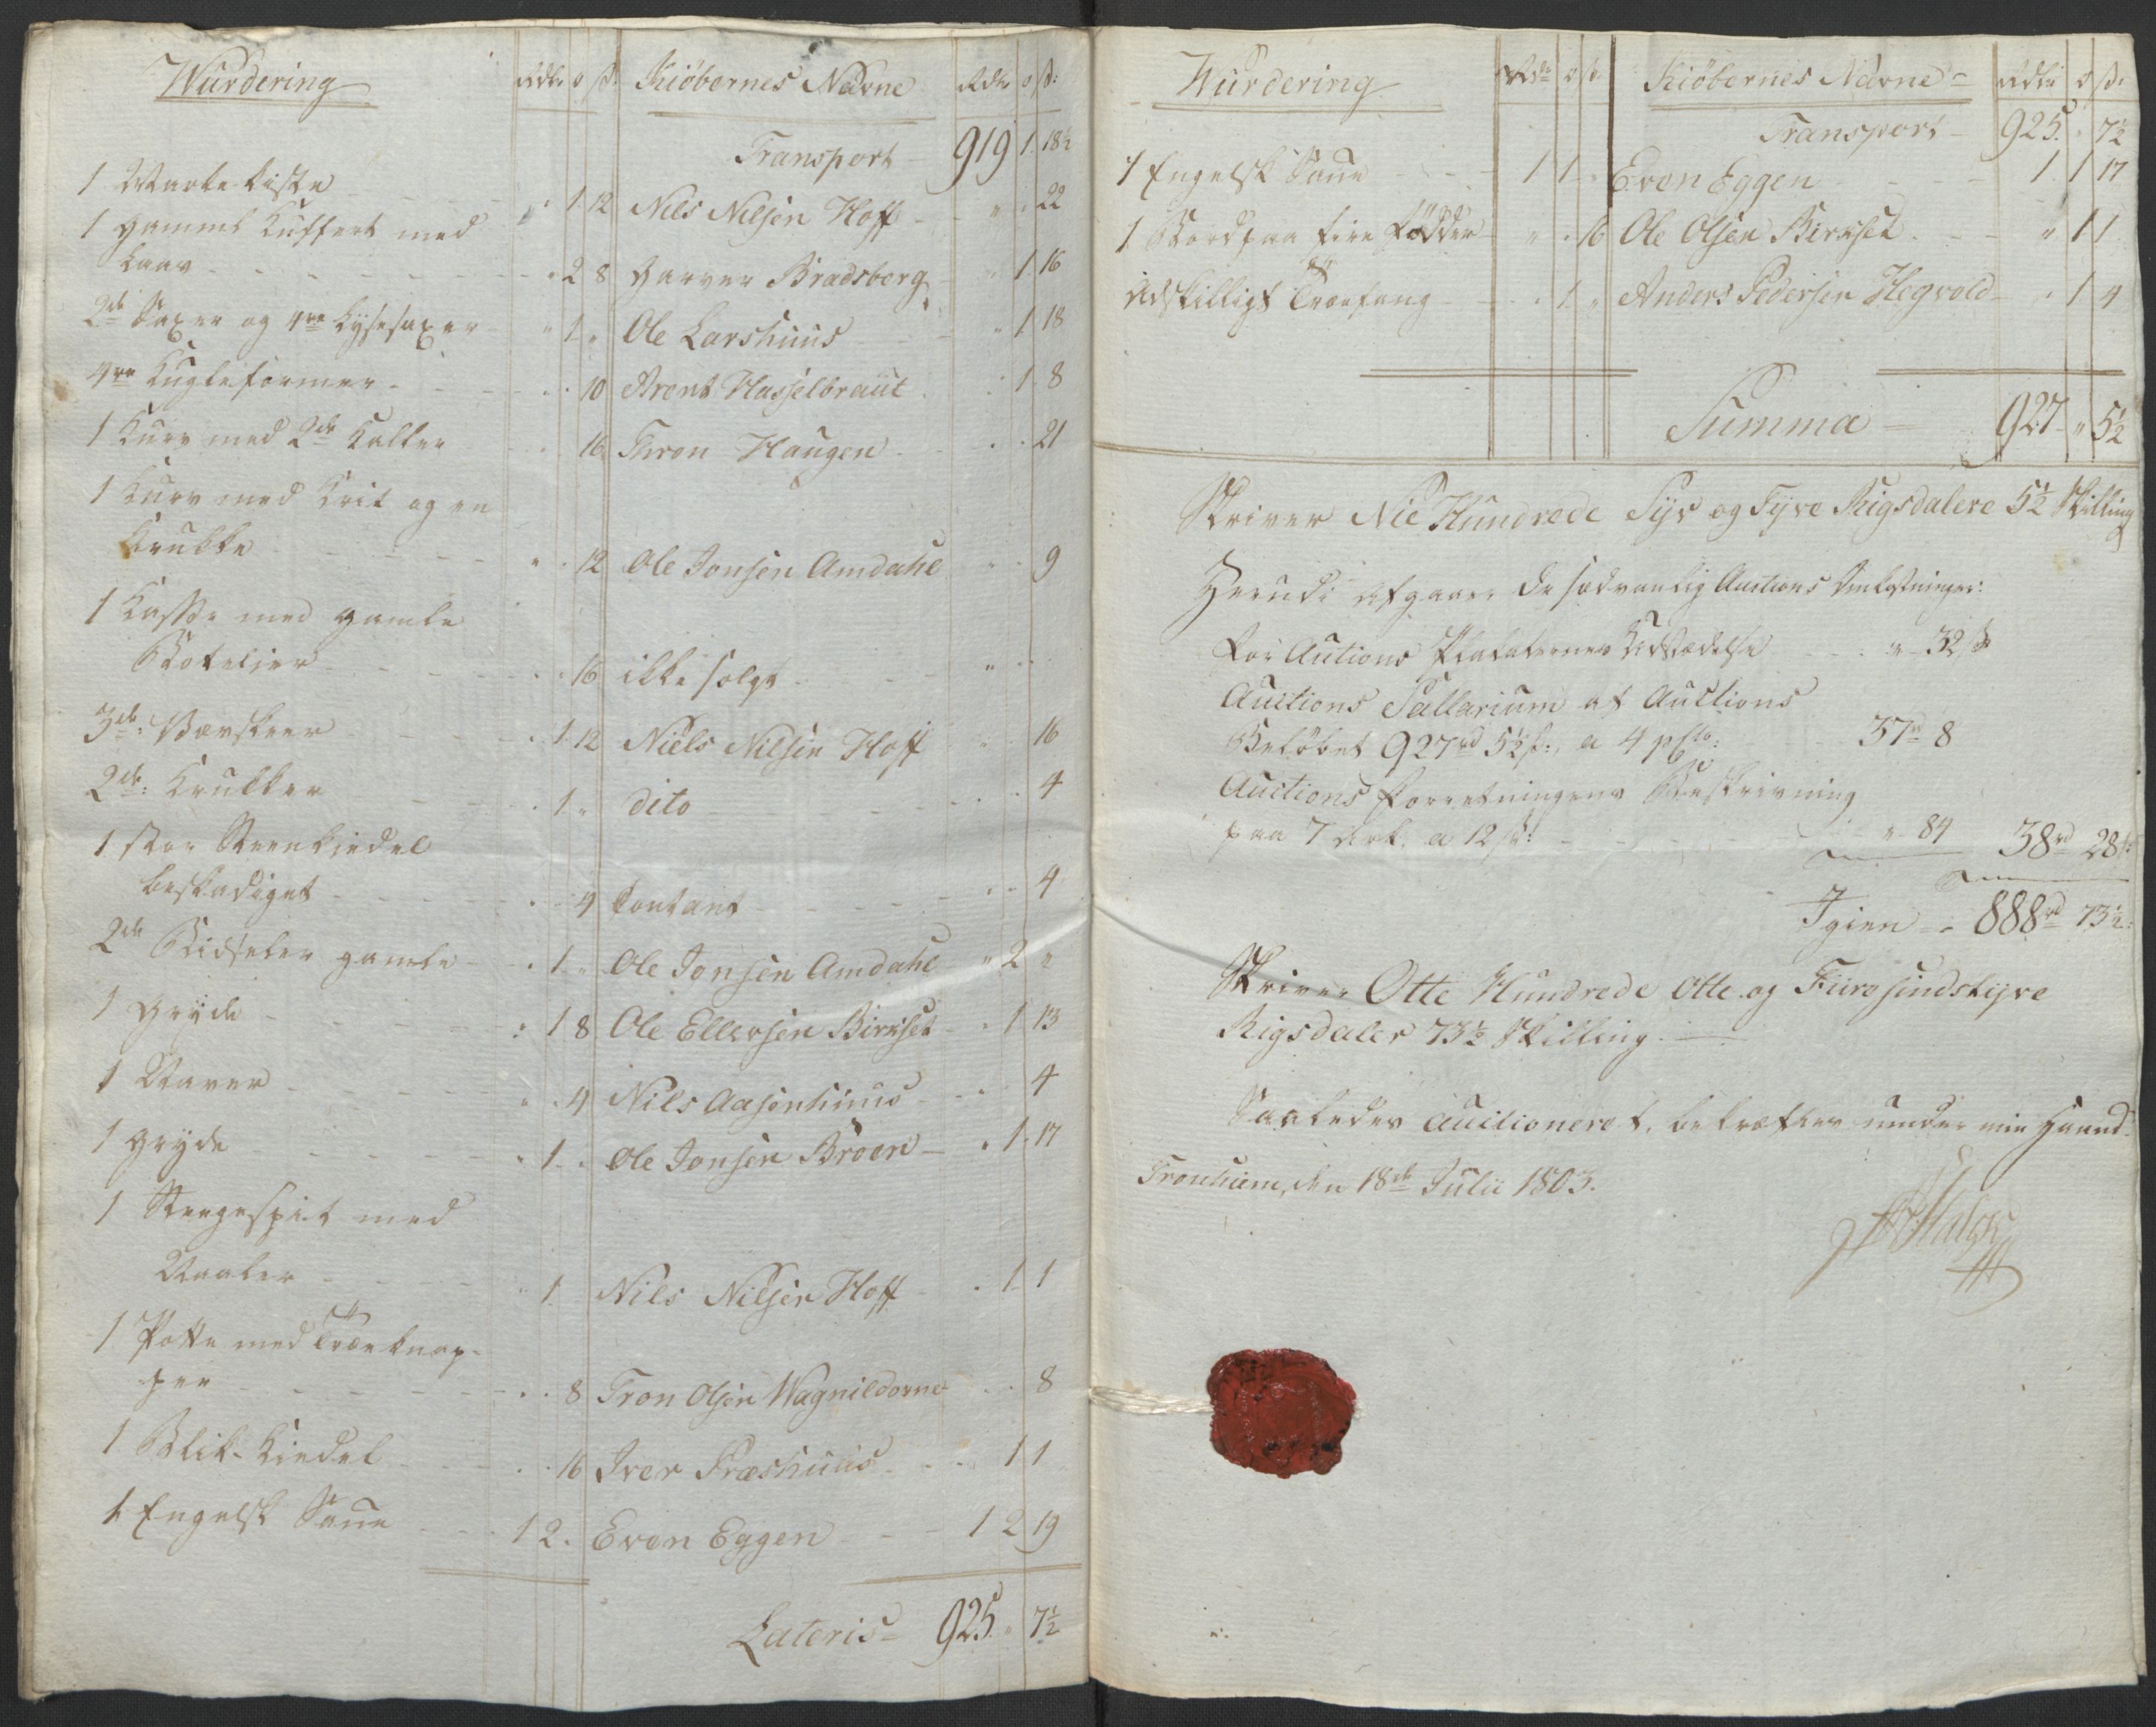 Wurdering Rdlr o ß: Kiöbernes Navne Rdlr o ß:
Transport 919 1 18½
1 Marke kiste " 1 12 Nils Nilsen Hoff " " 22
1 gammel Kuffert med
Laas " 2 8 Harver Bradsberg " 1 16
2de Saxer og 4re Lysesaxer " 1 " Ole Larshuus " 1 18
4re Kugleformer " " 10 Arent Hasselbraut " 1 8
1 Kurv med 2de Kalker " " 16 Thron Haugen " " 21
1 Kurv med Krit og en
Krukke " " 12 Ole Jonsen Amdahl " " 9
1 Kasse med gamle
Botelier " " 16 ikke solgt "
3de: Vævskeer " 1 12 Niels Nilsen Hoff " " 16
2de: Krukker " 1 " dito " " 4
1 stor Steenkiedel
beskadiget " " 4 Contant " " 4
2de Bidseler gamle " 1 " Ole Jonsen Amdahl " 2 "
1 Gryde " 1 8 Ole Ellevsen Birkset " 1 13
1 Naver " " 4 Nils Aasenhuus " " 4
1 Gryde " 1 " Ole Jonsen Broen " 1 17
1 Steegespit med
Naaler " 1 Nils Nilsen Hoff " 1 1
1 Potte med Træeknap-
per " " 8 Tron Olsen Wagnildorne " " 8
1 Blik-Kiedel " " 16 Iver Præshuus " 1 1
1 Engelsk Saue 1 2 " Even Eggen 1 2 19
Lateris 925 " 7½
Wurdering Rdlr o ß: Kiöbernes Navne Rdlr o ß:
Transport 925 " 7½
1 Engelsk Saue 1 1 " Even Eggen 1 1 17
1 Bord paa fire Fødder " " 16 Ole Olsen Birkset " 1 1
Adskilligt Træefang " 1 " Anders Pedersen Hegvold " 1 4
Summa 927 " 5½
Skriver Nie Hundrede Syv og Tyve Rigsdalere 5½ Skilling
Herudi afgaaer de sædvanlig Auctions Omkostninger:
For Auctions Plakaternes Udstædelse " 32 ß
Auctions Sallarium af Auctions
Beløbet 927rd 5½ ß:, a 4 pCto: 37rd 8
Auctions Forretningens Beskrivning
paa 7 Ark. a 12 ß: " 84 38rd 28 ß:
Igien 888rd 73½:
Skriver Otte Hundrede Otte og Fiiresindstyve
Rigsdaler 73½ Skilling.
Saaledes Auctioneret, bekræfter under min Haand.
Tronhiem, den 18de Julii 1803.